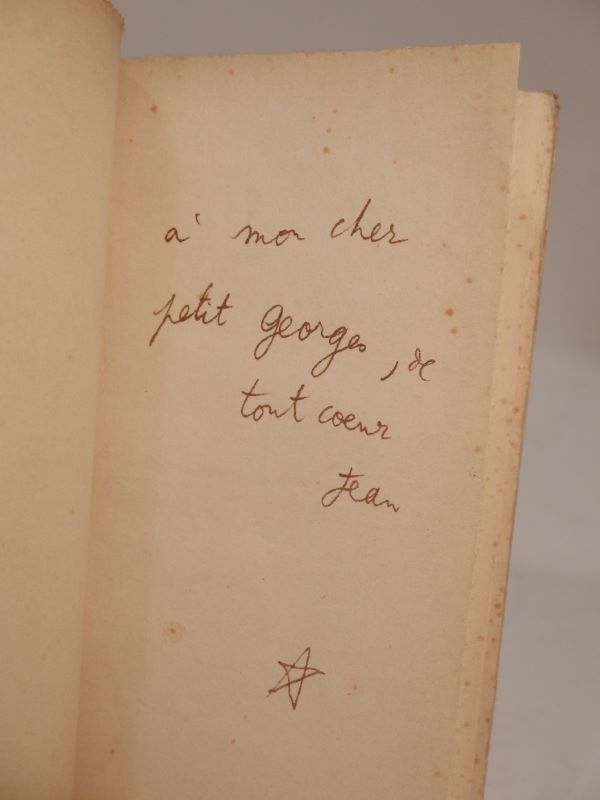 à mon cher
petit Georges, de
tout coeur
Jean